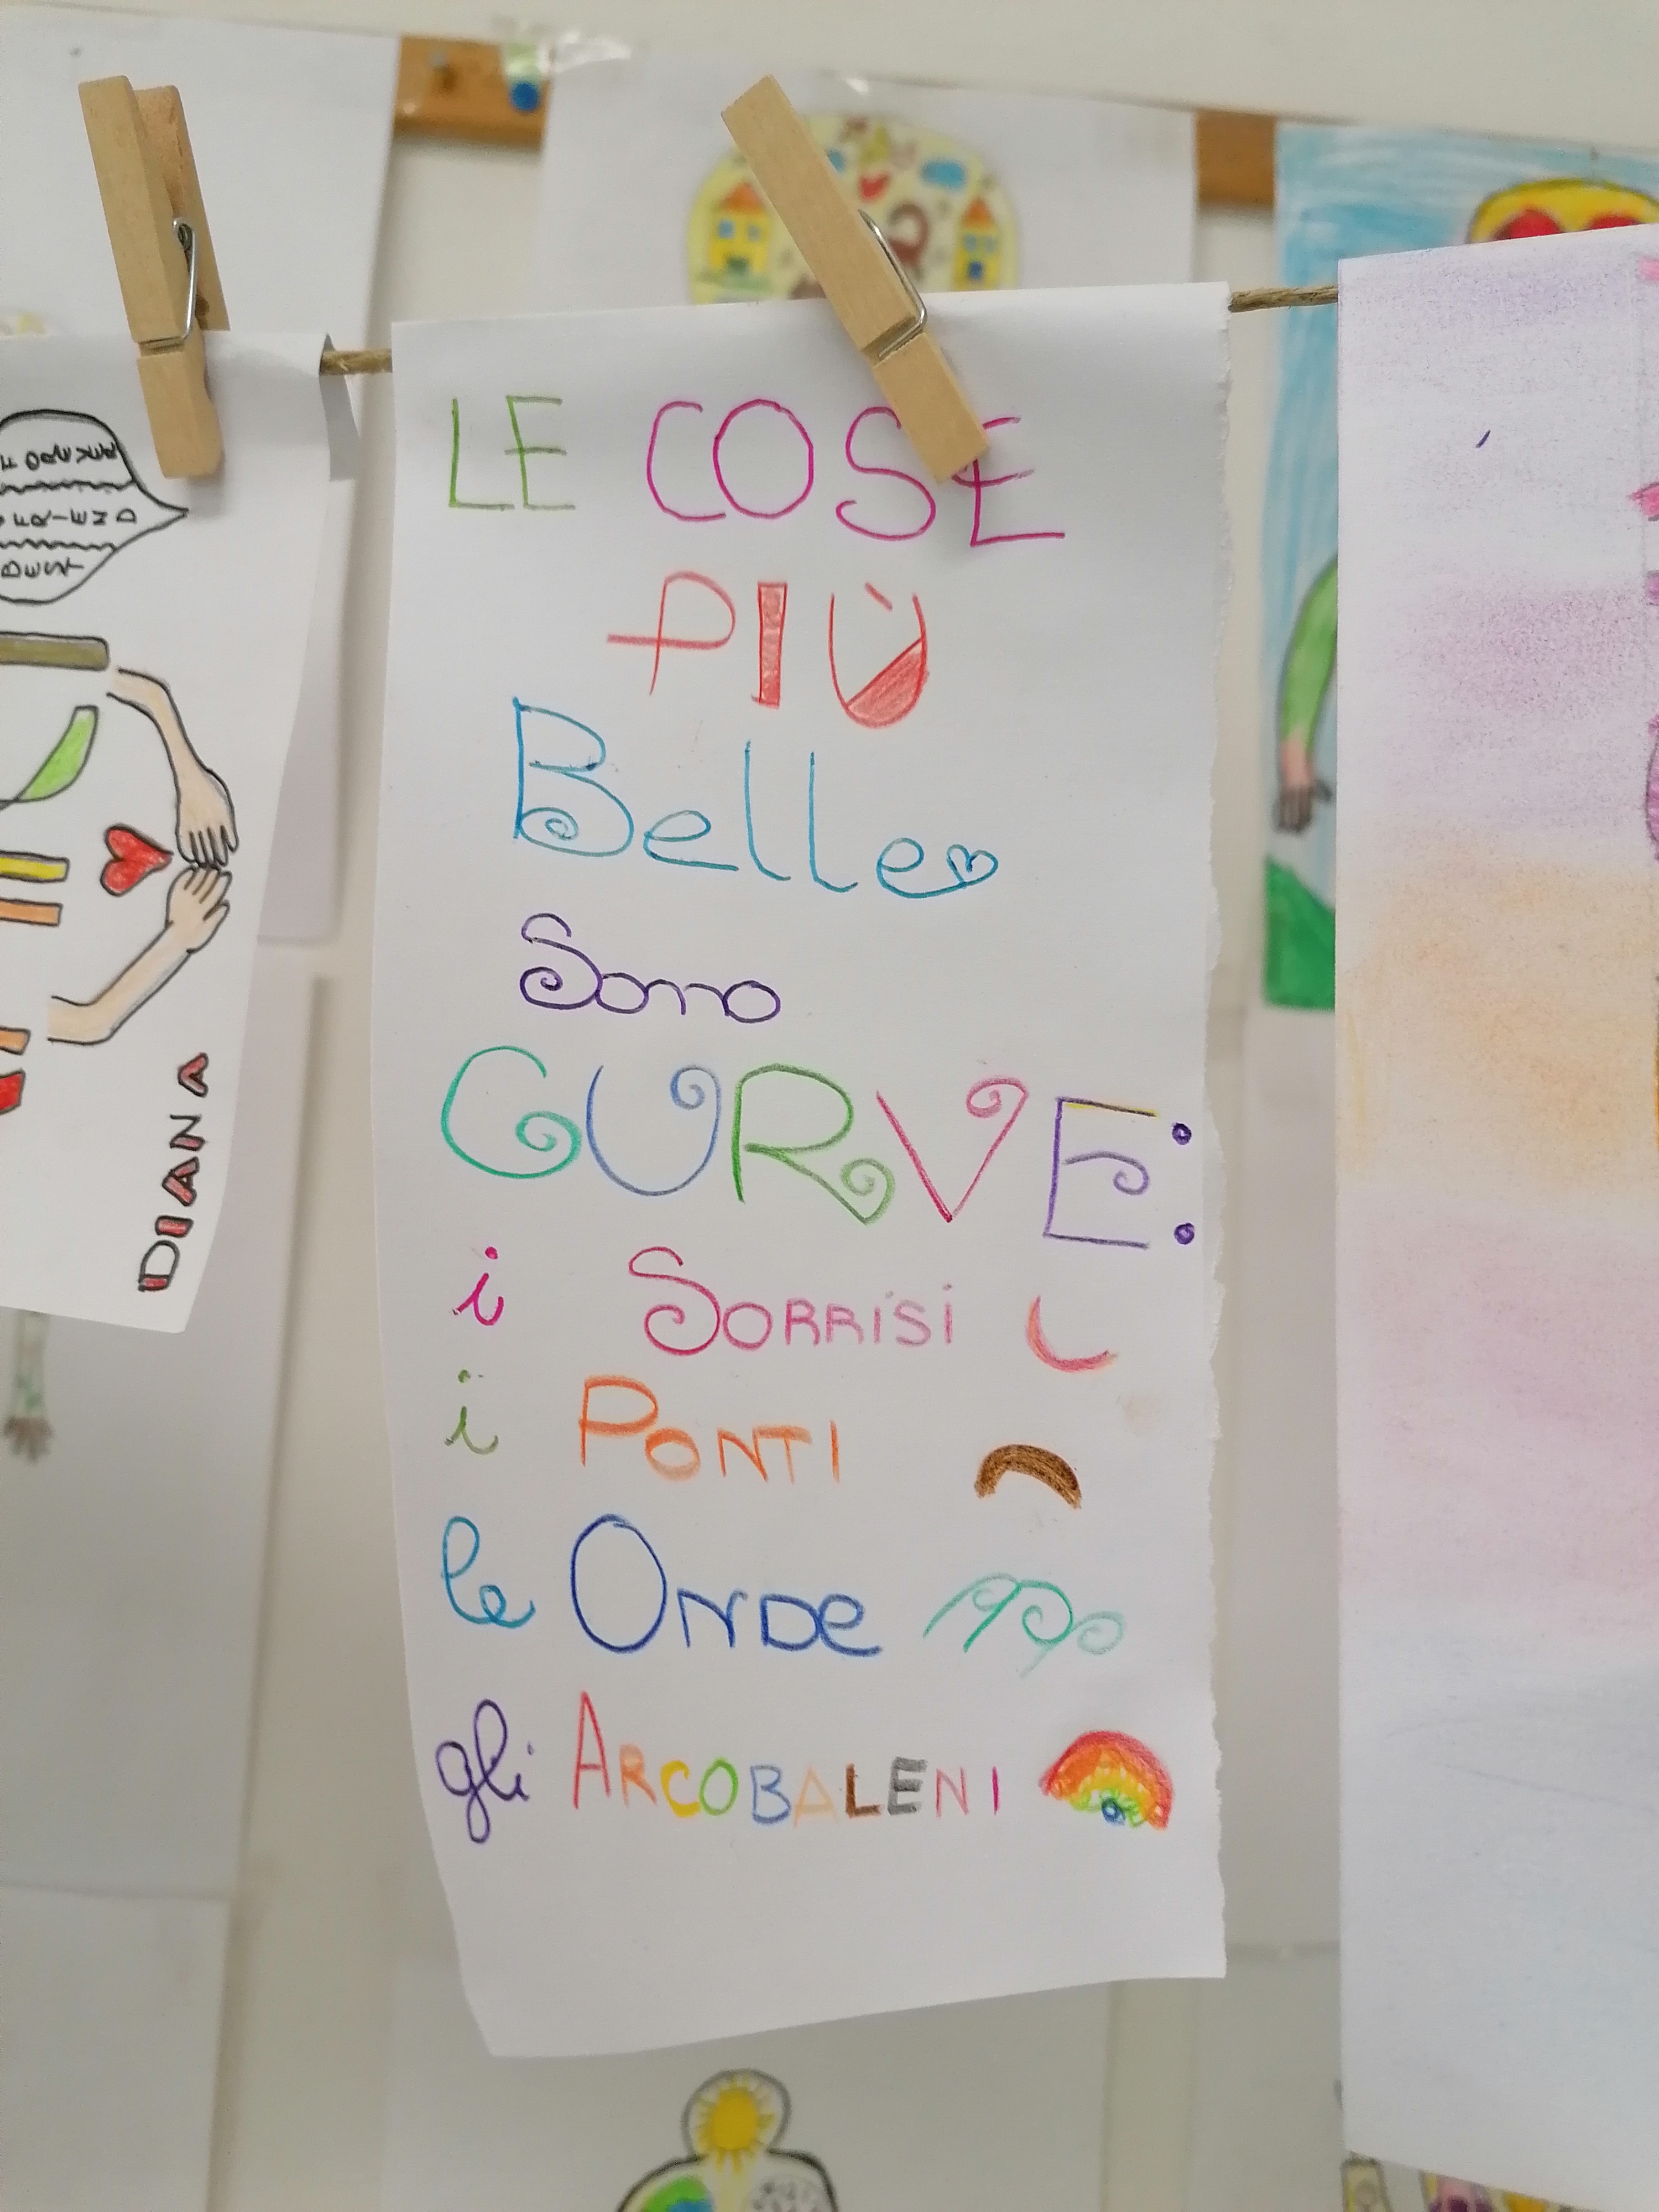 LE COSE
PIÙ
Belle
Sono
CURVE:
i SORRISI
i PONTI
le ONDE
gli ARCOBALENI
BEST
FRIEND
FOREVER
DIANA